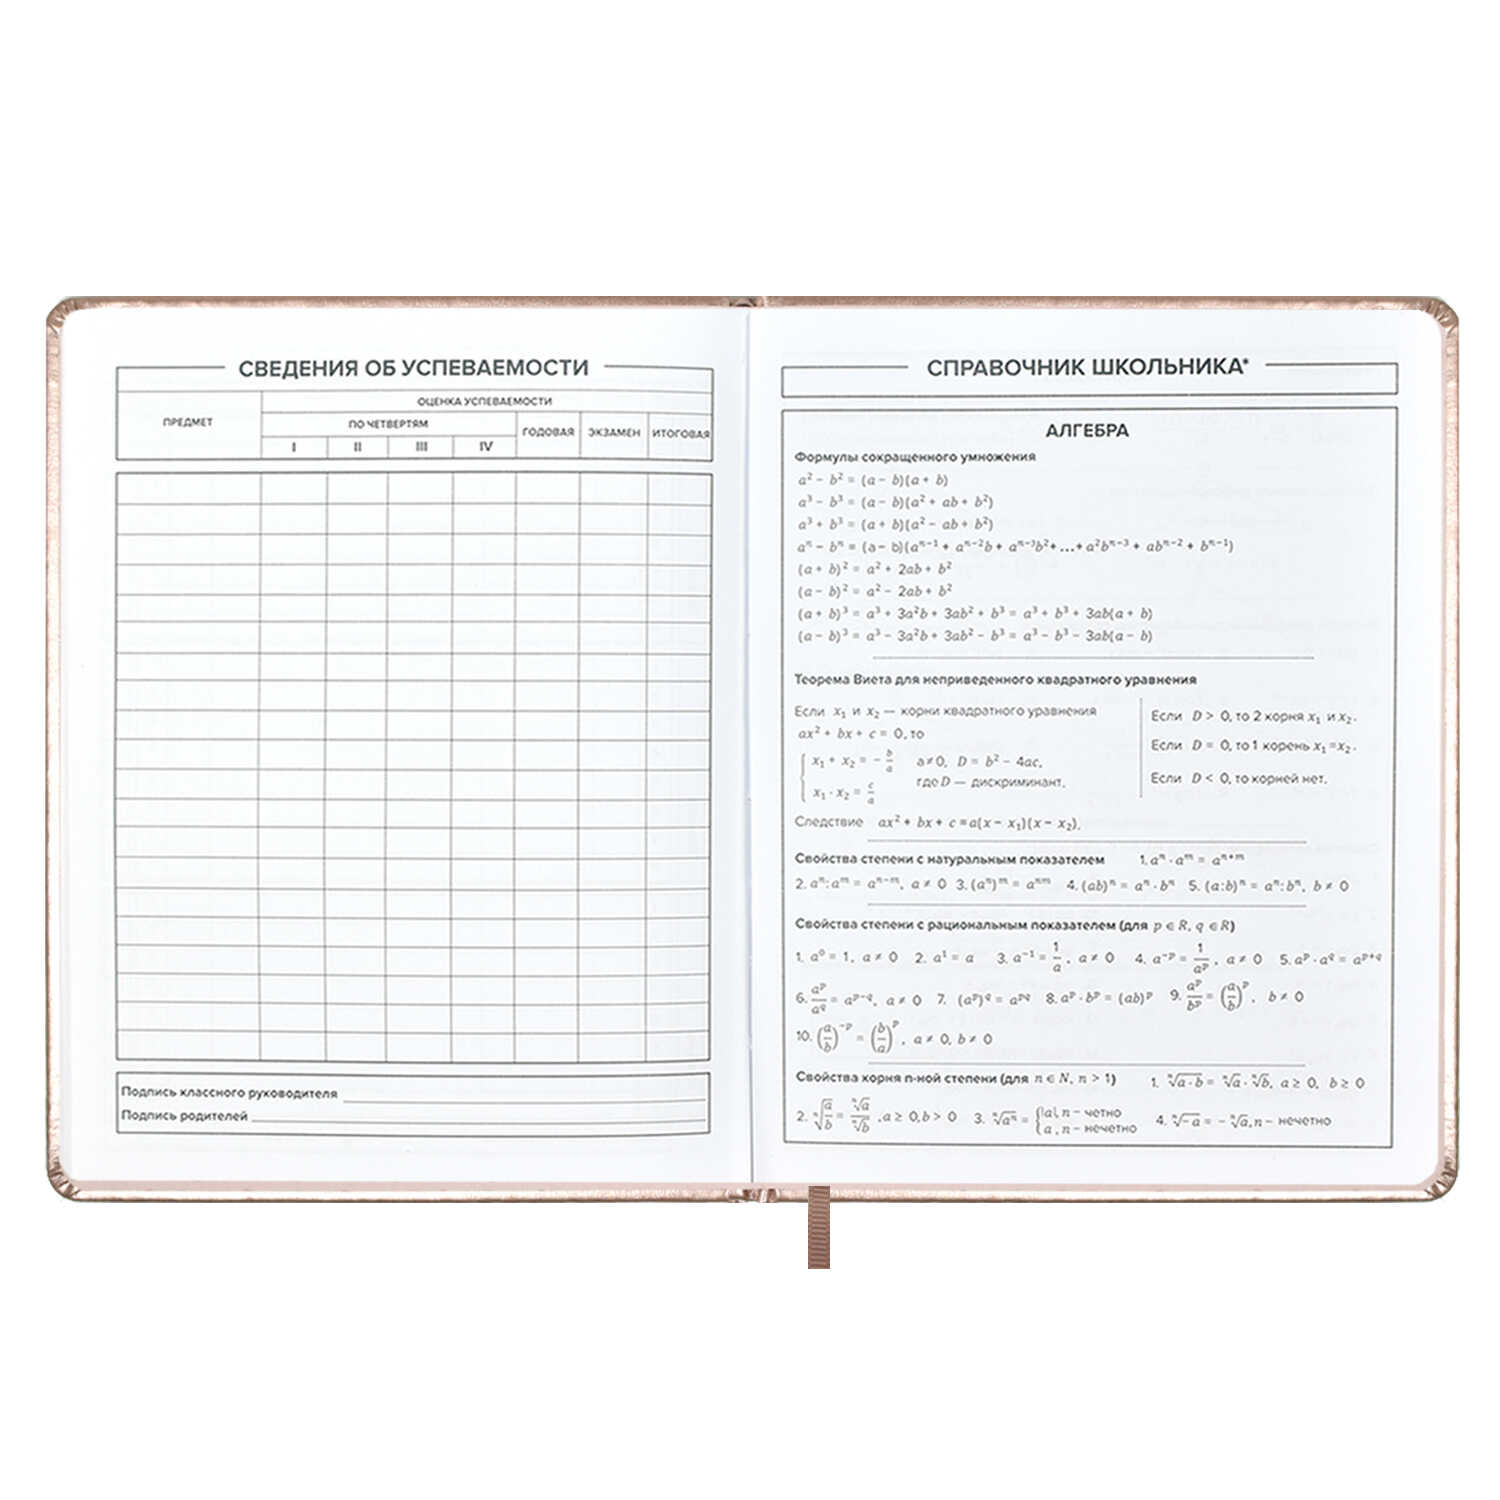 СВЕДЕНИЯ ОБ УСПЕВАЕМОСТИ
ПРЕДМЕТ
ОЦЕНКА УСПЕВАЕМОСТИ
ПО ЧЕТВЕРТЯМ
ГОДОВАЯ ЭКЗАМЕН ИТОГОВАЯ
I II III IV
Подпись классного руководителя
Подпись родителей
СПРАВОЧНИК ШКОЛЬНИКА*
АЛГЕБРА
Формулы сокращенного умножения
a² - b² = (a - b)(a + b)
a³ - b³ = (a - b)(a² + ab + b²)
a³ + b³ = (a + b)(a² - ab + b²)
aⁿ - bⁿ = (a - b)(aⁿ⁻¹ + aⁿ⁻²b + aⁿ⁻³b² + ... + a²bⁿ⁻³ + abⁿ⁻² + bⁿ⁻¹)
(a + b)² = a² + 2ab + b²
(a - b)² = a² - 2ab + b²
(a + b)³ = a³ + 3a²b + 3ab² + b³ = a³ + b³ + 3ab(a + b)
(a - b)³ = a³ - 3a²b + 3ab² - b³ = a³ - b³ - 3ab(a - b)
Теорема Виета для неприведенного квадратного уравнения
Если x₁ и x₂ — корни квадратного уравнения
ax² + bx + c = 0, то
{ x₁ + x₂ = - b/a a ≠ 0, D = b² - 4ac,
x₁ · x₂ = c/a где D — дискриминант.
Если D > 0, то 2 корня x₁ и x₂.
Если D = 0, то 1 корень x₁ = x₂.
Если D < 0, то корней нет.
Следствие ax² + bx + c = a(x - x₁)(x - x₂).
Свойства степени с натуральным показателем 1. aⁿ · aᵐ = aⁿ⁺ᵐ
2. aⁿ : aᵐ = aⁿ⁻ᵐ, a ≠ 0 3. (aⁿ)ᵐ = aⁿᵐ 4. (ab)ⁿ = aⁿ · bⁿ 5. (a : b)ⁿ = aⁿ : bⁿ, b ≠ 0
Свойства степени с рациональным показателем (для p ∈ R, q ∈ R)
1. a⁰ = 1, a ≠ 0 2. a¹ = a 3. a⁻¹ = 1/a, a ≠ 0 4. a^-p = 1/a^p, a ≠ 0 5. a^p · a^q = a^(p+q)
6. a^p/a^q = a^(p-q), a ≠ 0 7. (a^p)^q = a^pq 8. a^p · b^p = (ab)^p 9. a^p/b^p = (a/b)^p, b ≠ 0
10. (a/b)^-p = (b/a)^p, a ≠ 0, b ≠ 0
Свойства корня n-ной степени (для n ∈ N, n > 1) 1. ⁿ√(a · b) = ⁿ√a · ⁿ√b, a ≥ 0, b ≥ 0
2. ⁿ√(a/b) = ⁿ√a/ⁿ√b, a ≥ 0, b > 0 3. ⁿ√aⁿ = { |a|, n - четно
a, n - нечетно 4. ⁿ√-a = - ⁿ√a, n - нечетно